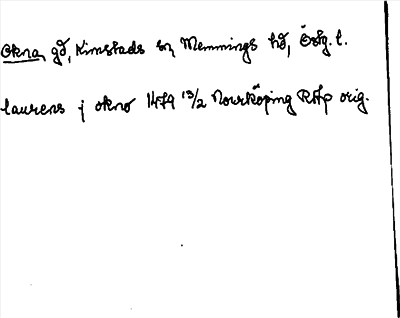 Okna, gd, Kimstads sn, Memmings hd, Östg. l.
laurens j okno 1479 13/2 Norrköping RAp orig.